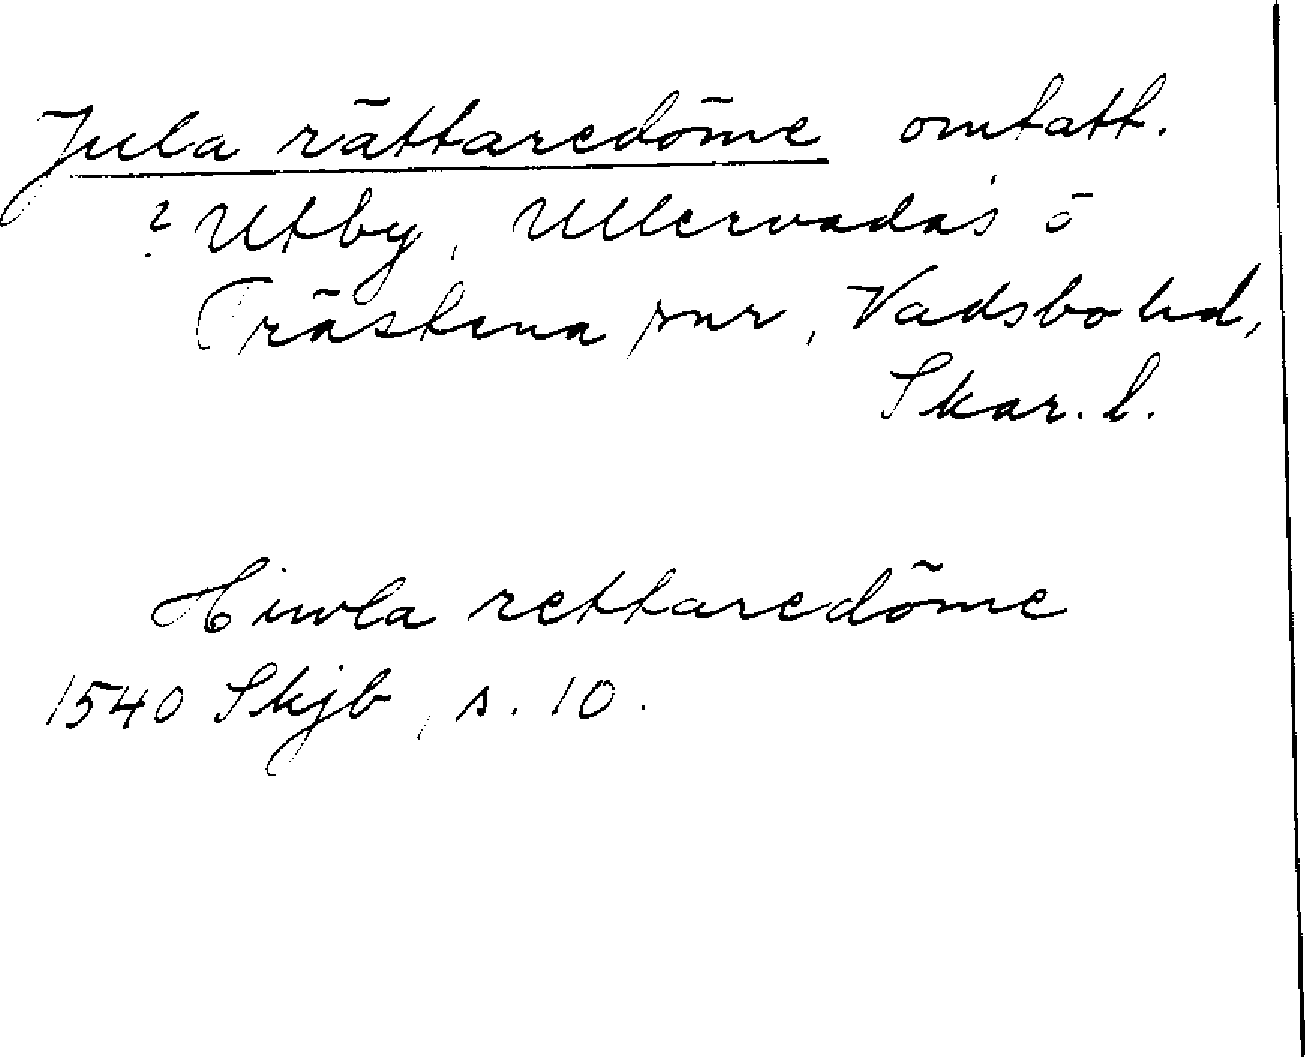 Jula rättaredöme omfatt.
? Utby, Ullervadås ö
Fräskena snr, Vadsbo hd,
Skar. l.
Hiwla rettaredöme
1540 Skjb, s. 10.